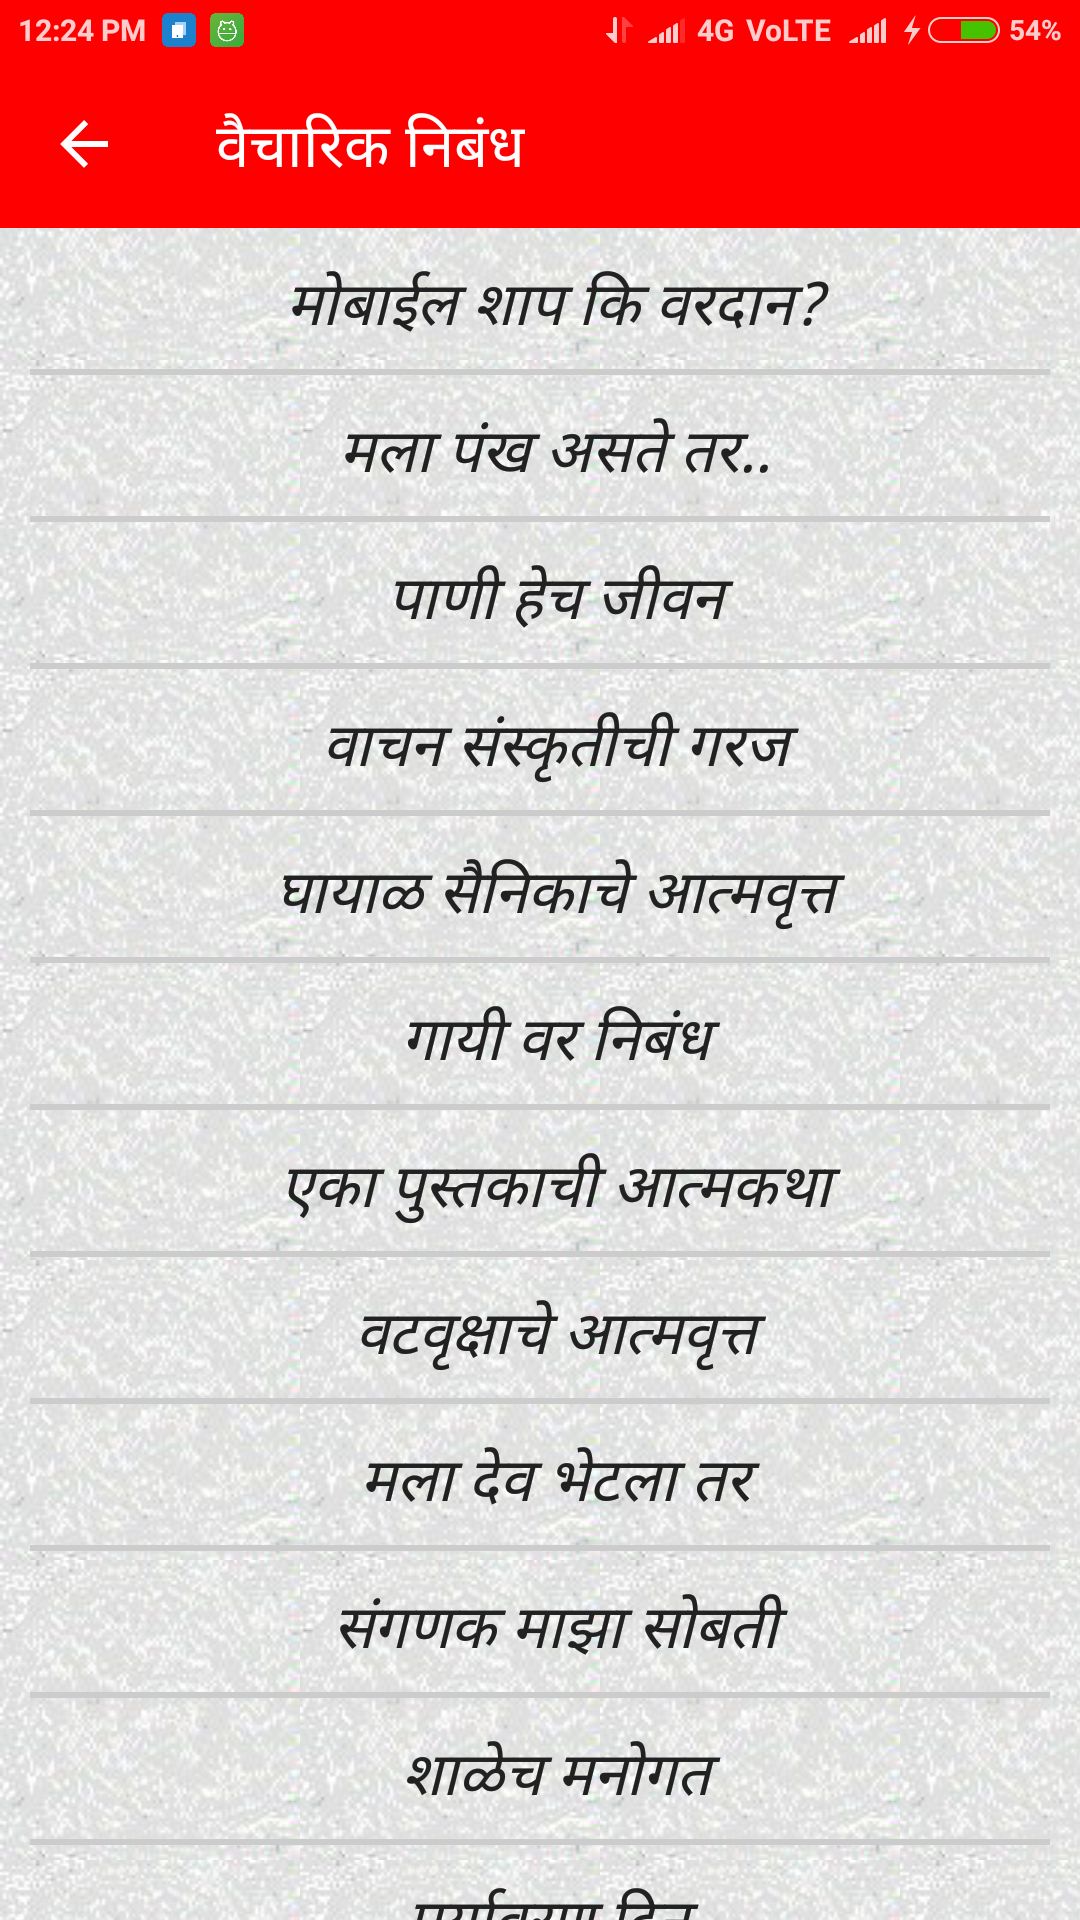 12:24 PM 4G VoLTE 54%
वैचारिक निबंध
मोबाईल शाप कि वरदान?
मला पंख असते तर..
पाणी हेच जीवन
वाचन संस्कृतीची गरज
घायाळ सैनिकाचे आत्मवृत्त
गायी वर निबंध
एका पुस्तकाची आत्मकथा
वटवृक्षाचे आत्मवृत्त
मला देव भेटला तर
संगणक माझा सोबती
शाळेच मनोगत